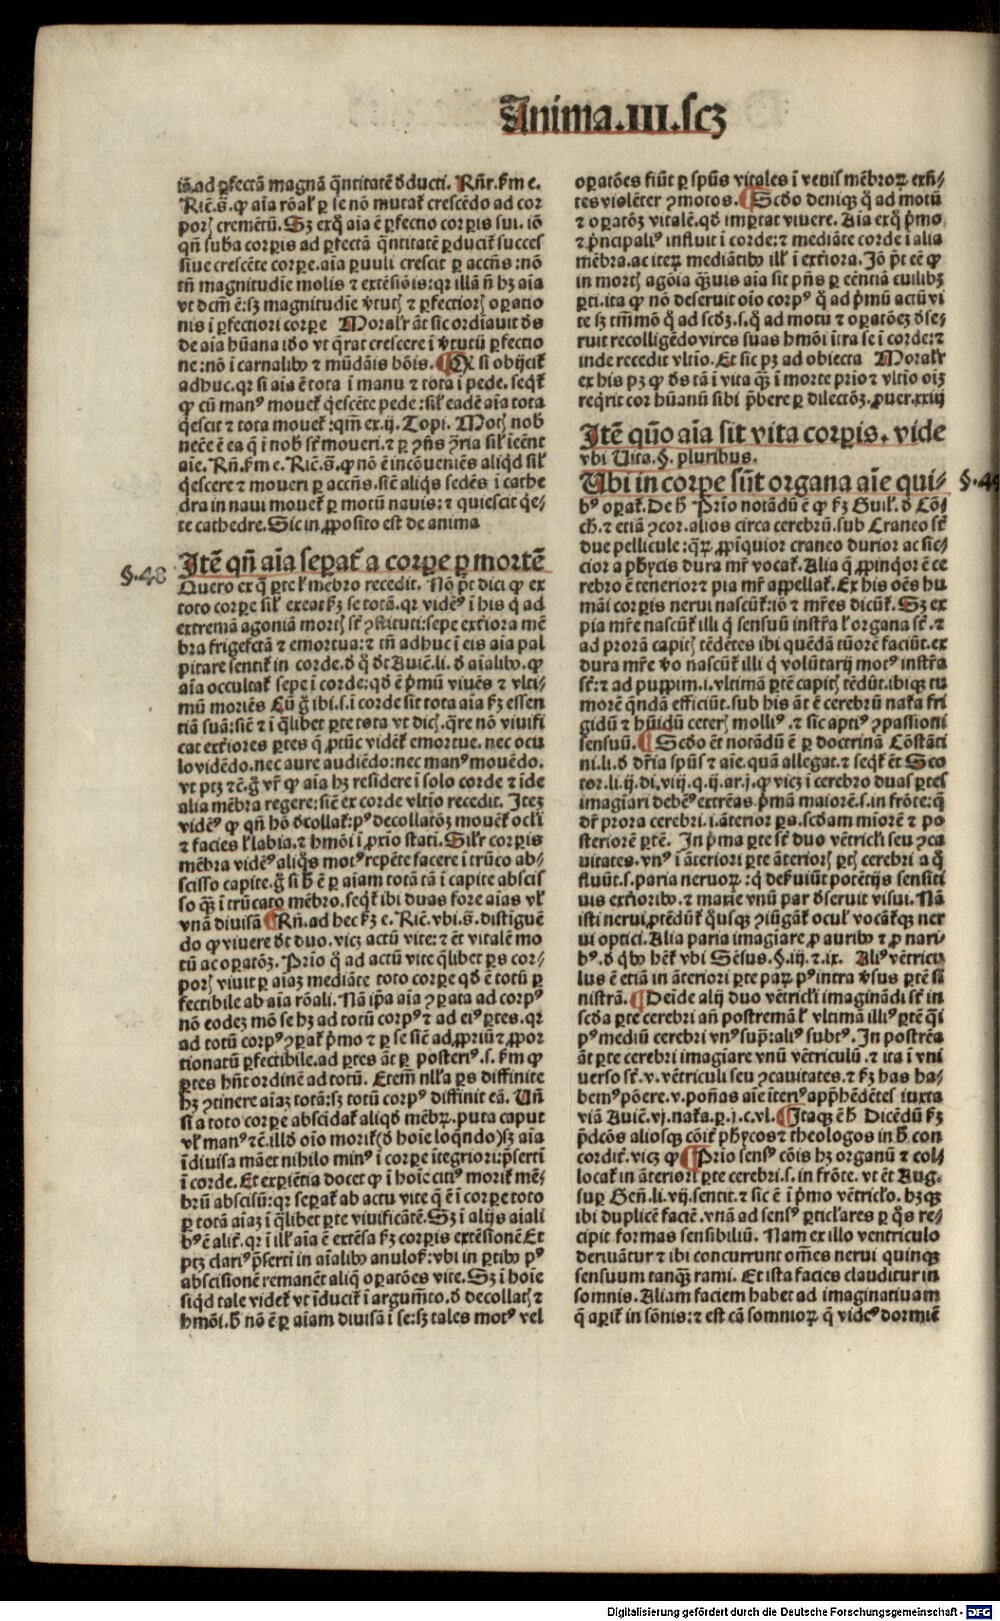 Anima.III.scꝫ
iā.ad ꝑfectā magnā q̄ntitatē ꝺducti. Rn̄r.ẜm e.
Ric̄.s̄.ꝙ aīa rōal' ꝑ se nō mutat᷑ crescēdo ad cor
poꝝ cremētū. Sꝫ exq̄ aīa ē ꝑfectio corꝑis sui. iō
qn̄ suba corꝑis ad ꝑfectā q̄ntitatē ꝑducit᷑ succes
siue crescēte corꝑe.aīa ꝑuuli crescit ꝑ accn̄s:nō
tn̄ magnitudīe molis ⁊ extēsiōis:qr illā n̄ hꝫ aīa
vt dcm̄ ē:sꝫ magnitudīe v̓tutꝭ ⁊ ꝑfectioꝝ oꝑatio
nis ī ꝑfectiori corꝑe Moral'r āt sic ordīauit ds
de aīa hūana iꝺo vt q̄rat crescere ī v̓tutū ꝑfectio
ne:nō ī carnalibꝰ ⁊ mūdāis bōis. Qꝫ si obijcit᷑
adhuc.qr si aīa ē tota ī manu ⁊ tota ī pede. seqt᷑
ꝙ cū manꝰ mouet᷑ q̇escēte pede:sil' eadē aīa tota
q̇escit ⁊ tota mouet᷑ :qm̄ ex.ij. Topi. Motꝭ nob̄
necē ē ea q̄ ī nob̄ st̄ moueri.⁊ ꝑ ꝯn̄s ꝯria sil' īeēnt
aīe. Rn̄.ẜm e. Ric̄.s̄.ꝙ nō ē incōueniēs aliqd sil'
q̇escere ⁊ moueri ꝑ accn̄s.sic̄ aliqs sedēs ī cathe
dra in naui mouet᷑ ꝑ motū nauis:⁊ quiescit q̇e-
te cathedre. Sic in ꝓposito est de anima
§.48 Itē qn̄ aīa seꝑat᷑ a corꝑe ꝑ mortē
Quero ex q̄ ꝑte l' mēbro recedit. Nō pt̄ dici ꝙ ex
toto corꝑe sil' exeat ẜꝫ se totā.qr videmꝰ ī his q̇ ad
extremā agoniā mortꝭ st̄ ꝯstituti:sepe extīora mē
bra frigefctā ⁊ emortua:⁊ tn̄ adhuc ī eis aīa pal
pitare sentit᷑ in corde.ꝺ q̄ dt Auic̄.li. ꝺ aīalibꝰ.ꝙ
aīa occultat᷑ sepe ī corde:qd ē pmū viuēs ⁊ vlti-
mū moriēs Cū g̊ ibi.s.ī corde sit tota aīa ẜꝫ essen
tiā suā:sic̄ ⁊ ī q̄libet ꝑte tota vt dicꝭ.q̄re nō viuifi
cat extiores ꝑtes q̄ ꝓtūc vidēt᷑ emortue. nec ocu
lo vidēdo.nec aure audiēdo:nec manꝰ mouēdo.
vt ptꝫ ⁊c̄.g̊ vr̄ ꝙ aīa hꝫ residere ī solo corde ⁊ īde
alia mēbra regere:sic̄ ex corde vltīo recedit. Iteꝫ
videmꝰ ꝙ qn̄ hō ꝺcollat᷑:pꝰ decollatōꝫ mouēt᷑ ocl'i
⁊ facies l' labia.⁊ hmōi ī ꝓrio stati. Silr corꝑis
mēbra videmꝰ aliqs motꝰ repēte facere ī trūco ab-
scisso capite.g̊ si h̄ ē ꝑ aīam totā tā ī capite abscis
so qꝫ ī trūcato mēbro.seqt᷑ ibi duas fore aīas vl'
vnā diuisā Rn̄.ad hec ẜꝫ e. Ric̄.vbi.s̄.distīguē
do ꝙ viuere dt duo.vicꝫ actū vite:⁊ ēt vitalē mo
tū ac oꝑatōꝫ. Prīo q̇ ad actū vite q̄libet ꝑs cor-
poꝝ viuit ꝑ aīaꝫ mediāte toto corꝑe qd ē totū ꝑ
fectibile ab aīa rōali. Nā īpa aīa ꝯꝑata ad corpꝰ
nō eodeꝫ mō se hꝫ ad totū corpꝰ ⁊ ad eiꝰ ꝑtes.qr
ad totū corpꝰ ꝯꝑat᷑ pmo ⁊ ꝑ se sic̄ ad ꝓpriū ⁊ ꝓpor
tionatū ꝑfectibile.ad ꝑtes āt ꝑ posteriꝰ.s. ẜm ꝙ
ꝑtes hn̄t ordinē ad totū. Etem̄ nl'la ꝑs diffinite
hꝫ ꝯtinere aīaꝫ totā:sꝫ totū corpꝰ diffinit eā. Un̄
si a toto corꝑe abscidat᷑ aliqd mēbꝝ.puta caput
vl' manꝰ ⁊c̄.illd oīo morit᷑(ꝺ hoīe loq̄ndo)sꝫ aīa
īdiuisa māet nihilo minꝰ ī corꝑe ītegriori:p̄serti
ī corde. Et exꝑiētia docet ꝙ ī hoīe citiꝰ morit᷑ mē-
brū abscisū:qr seꝑat᷑ ab actu vite q̄ ē ī corꝑe toto
ꝑ totā aīaꝫ ī q̄libet ꝑte viuificātē. Sꝫ ī alijs aīali
bꝰ ē alit᷑.qr ī ill' aīa ē extēsa ẜꝫ corꝑis extēsionē Et
ptꝫ clariꝰ p̄serti in aīalibꝰ anulo:vbi in ꝑtibꝰ pꝰ
abscisionē remanēt aliq̄ oꝑatōes vite. Sꝫ ī hoīe
siqd tale videt᷑ vt īducit᷑ ī argumēto.ꝺ decollatꝭ ⁊
hmōi.h̄ nō ē ꝑ aīam diuisā ī se:sꝫ tales motꝰ vel
oꝑatōes fiūt ꝑ spūs vitales ī venis mēbroꝝ exn̄-
tes violēter ꝯmotos. Scdo deniqꝫ q̇ ad motū
⁊ oꝑatōꝫ vitalē.qd imꝑtat viuere. Aīa exq̄ pmo
⁊ pncipaliꝰ influit ī corde:⁊ mediāte corde ī alia
mēbra.ac iteꝝ mediātibꝰ ill' ī extiora. Iō pt̄ eē ꝙ
in mortꝭ agōia q̄uis aīa sit pn̄s ꝑ eēntiā cuilibꝫ
ꝑti.ita ꝙ nō deseruit oīo corpꝰ q̇ ad pmū actū vi
te sꝫ tm̄mō q̇ ad scdꝫ.s.q̇ ad motū ⁊ oꝑatōeꝫ ꝺse-
ruit recolligēdo vires suas hmōi ītra se ī corde:⁊
inde recedit vltīo. Et sic pꝫ ad obiecta Moralr
ex his pꝫ ꝙ ds tā ī vita qꝫ ī morte prio ⁊ vltīo oīꝫ
reqrit cor hūanū sibi p̄bere ꝑ dilectōꝫ.ꝓuer.xxiij
Itē quō aīa sit vita corꝑis. vide
vbi Uita.§. pluribus.
Ubi in corꝑe sūt organa aīe qui- §.49
bꝰ oꝑat᷑. De h̄ Prīo notādū ē ꝙ ẜꝫ Guil'. ꝺ Cō-
cꝭ. ⁊ etiā ꝯcor.alios circa cerebrū.sub Craneo st̄
due pellicule:q̄ꝝ ꝓpīquior craneo durior ac sic-
cior a phycis dura mr̄ vocat᷑. Alia q̄ ꝓpinqor ē ce
rebro ē teneriorꝫ pia mr̄ appellat᷑. Ex his oēs hu
māi corꝑis nerui nascūt᷑:iō ⁊ mr̄es dicūt᷑. Sꝫ ex
pia mr̄e nascūt᷑ illi q̇ sensuū instr̄a l' organa st̄.⁊
ad prorā capitꝭ tēdētes ibi quēdā tūorē faciūt.ex
dura mr̄e v̓o nascūt᷑ illi q̇ volūtarij motꝰ instr̄a
st̄:⁊ ad puppim.i.vltimā ꝑtē capitꝭ tēdūt.ibiqꝫ tu
morē qndā efficiūt.sub his āt ē cerebrū nat᷑a fri
gidū ⁊ hūidū ceterꝭ molliꝰ.⁊ sic aptiꝰ ꝯpassioni
sensuū. Scdo ēt notādū ē ꝑ doctrinā Cōstāti
ni.li.ꝺ dria spūs ⁊ aīe.quā allegat.⁊ seqt᷑ ēt Sco
tor.li.ij.di.viij.q.ij.ar.j.ꝙ vicꝫ ī cerebro duas ꝑtes
imagiari debemꝰ extrēas.pmā maiorē.s.in frōte:q̄
dr̄ prora cerebri.i.āterior ꝑs.scdam miorē ⁊ po
steriorē ꝑtē. In pma ꝑte st̄ duo vētricl'i seu ꝯca
uitates.vnꝰ ī āteriori ꝑte āterioꝝ ꝑtꝭ cerebri a q̄
fluūt.s.paria neruoꝝ:q̇ deẜuiūt potētijs sensiti
uis extioribꝰ.⁊ maxie vnū par ꝺseruit visui. Nā
isti nerui ꝓtēdūt᷑ q̇usqꝫ ꝯiūgāt᷑ ocul' vocātqꝫ ner
ui optici. Alia paria imagiare ꝓ auribꝰ ⁊ ꝓ nari-
bꝰ.ꝺ q̇bꝰ hēt᷑ vbi Sēsus.§.iij.⁊.ix. Aliꝰ vētricu
lus ē etiā in āteriori ꝑte paꝝ pꝰ intra v̓sus ꝑtē si
nistrā. Deīde alij duo vētricl'i imaginādi st̄ in
scda ꝑte cerebri añ postremā l' vltimā illiꝰ ꝑtē q̄si
pꝰ mediū cerebri vnꝰ supra:aliꝰ subtꝰ. In postrēa
āt ꝑte cerebri imagiare vnū vētriculū.⁊ ita ī vni
uerso st̄.v.vētriculi seu ꝯcauitates.⁊ ẜꝫ has ha-
bemꝰ pōere.v.potn̄as aīe īteriꝰ appr̄hēdētes iuxta
viā Auic̄.vj.nat᷑a.p.j.c.vl. Itaqꝫ ē h̄ Dicēdū ẜꝫ
p̄dcōs aliosqꝫ cōit᷑ phycos ⁊ theologos in h̄ con
cordit᷑.vicꝫ ꝙ Prīo sensꝰ cōis hꝫ organū ⁊ col-
locat᷑ in āteriori ꝑte cerebri.s.in frōte.vt ēt Aug.
suꝑ Gen̄.li.vij.sentit.⁊ sic ē ī pmo vētricl'o.hꝫqꝫ
ibi duplicē faciē.vnā ad sensꝰ ꝑticl'ares ꝑ q̄s re-
cipit formas sensibiliū. Nam ex illo ventriculo
deriuātur ⁊ ibi concurrunt om̄es nerui quinqꝫ
sensuum tanqꝫ rami. Et ista facies clauditur in
somnis. Aliam faciem habet ad imaginatiuam
q̄ aꝑit᷑ in sōnis:⁊ est cā somnioꝝ q̄ videt dormiē
Digitalisierung gefördert durch die Deutsche Forschungsgemeinschaft - DFG